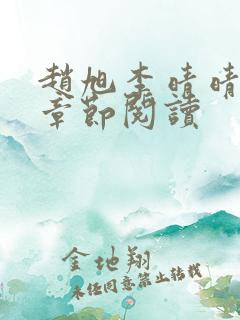 趙旭李晴晴
章節閱讀
金地翔
未经同意禁止转载